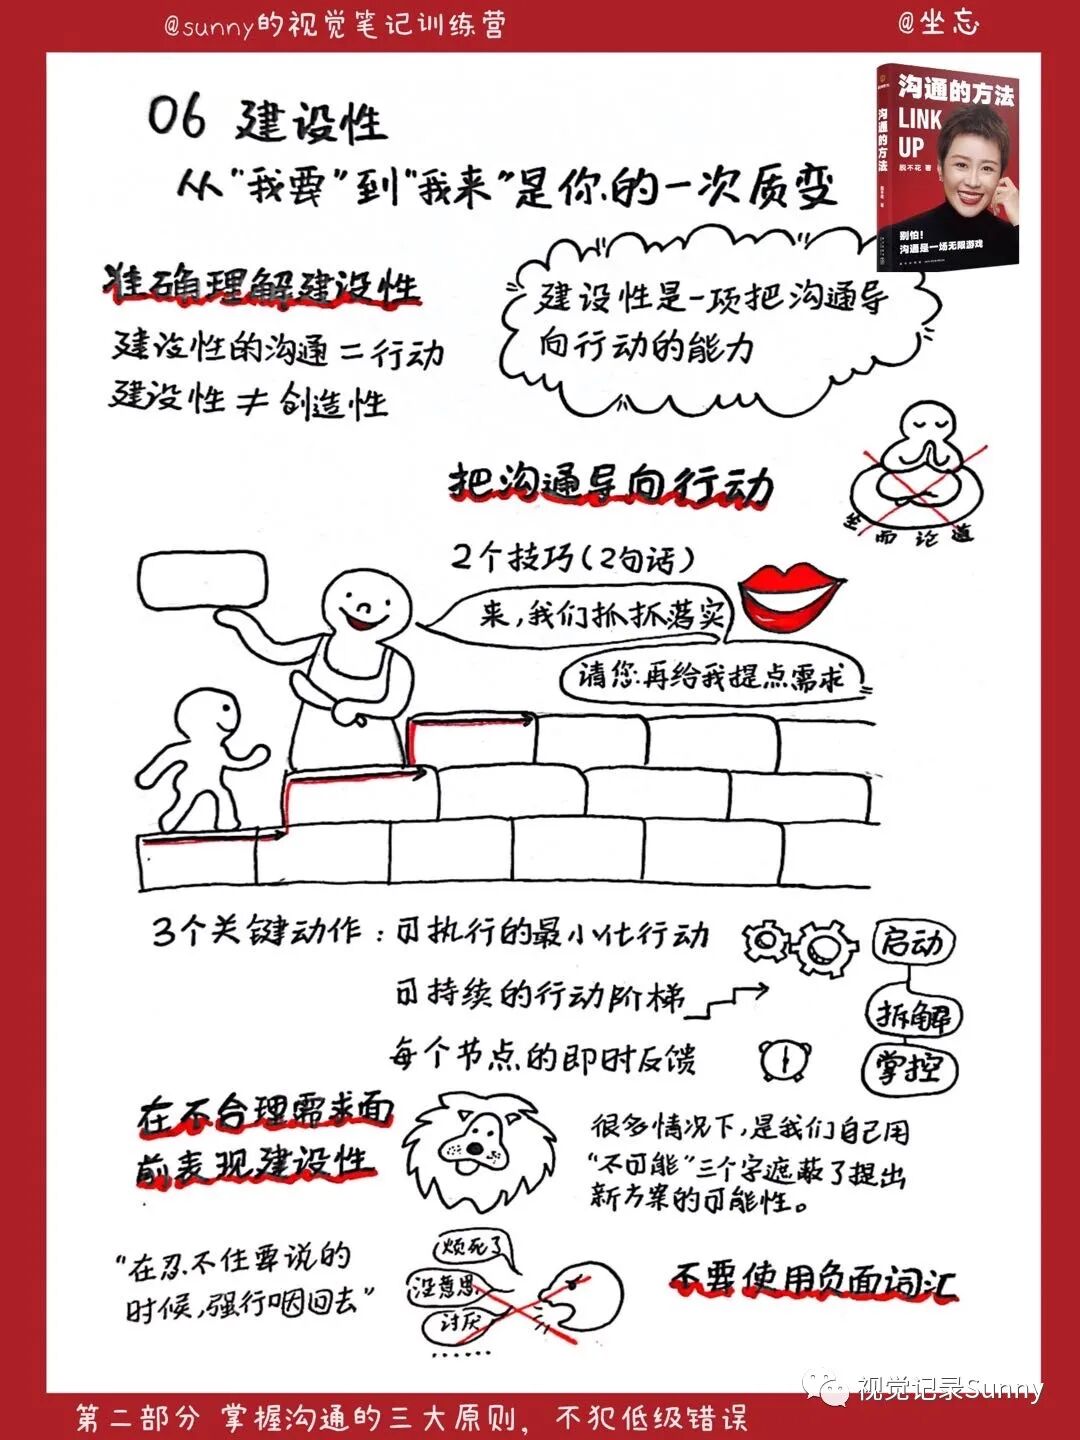 @sunny的视觉笔记训练营
@坐忘
沟通的方法
LINK
UP
脱不花 著
别怕！
沟通是一场无限游戏
沟通的方法
06 建设性
从“我要”到“我来”是你的一次质变
准确理解建设性
建设性的沟通=行动
建设性≠创造性
建设性是一项把沟通导
向行动的能力
把沟通导向行动
坐而论道
2个技巧(2句话)
来,我们抓抓落实
请您再给我提点需求
3个关键动作:可执行的最小化行动
启动
可持续的行动阶梯
拆解
每个节点的即时反馈
掌控
在不合理需求面
前表现建设性
很多情况下,是我们自己用
“不可能”三个字遮蔽了提出
新方案的可能性。
“在忍不住要说的
时候,强行咽回去”
烦死了
没意思
讨厌
……
不要使用负面词汇
视觉记录Sunny
第二部分 掌握沟通的三大原则，不犯低级错误